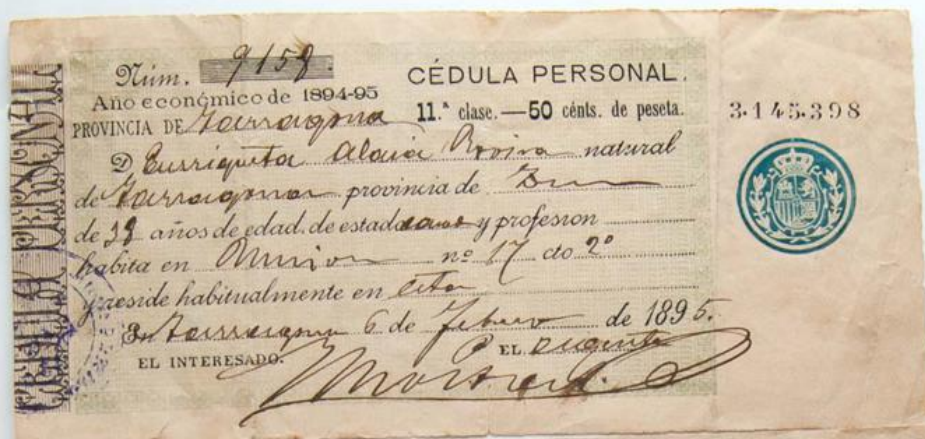 CÉDULA PERSONAL
Núm. 9158.
CÉDULA PERSONAL.
Año económico de 1894-95
11.ª clase.—50 cénts. de peseta.
3.145.398
PROVINCIA DE Tarragona
D Enrriqueta natural
de Tarragona provincia de
de años de edad, de estado y profesion
habita en nº 17 cto 2º
y reside habitualmente en esta
En Tarragona 6 de febrero de 1895.
EL INTERESADO.
EL